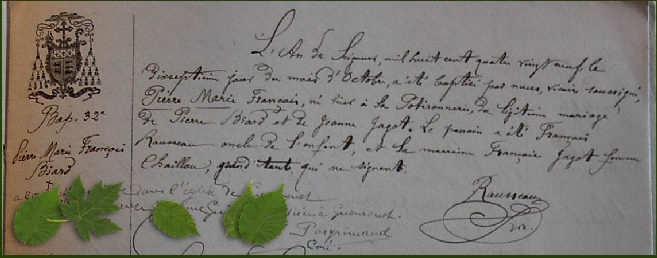 Bap. 32e
Pierre Marie François
Biard
L'An du Seigneur, mil huit cent quatre vingt neuf le
dixseptième jour du mois d'Octobre, a été baptisé par nous, vicaire soussigné,
Pierre Marie Francois, né hier à la Potironnerie, du légitime mariage
de Pierre Biard et de Jeanne Jagot. Le parrain a été François
Rousseau oncle de l'enfant, et la marraine Françoise Jagot femme
Chaillou, grand'tante qui ne signent.
Rousseau
Vic.
dans l'église de
à Guenrouet.
Curé.